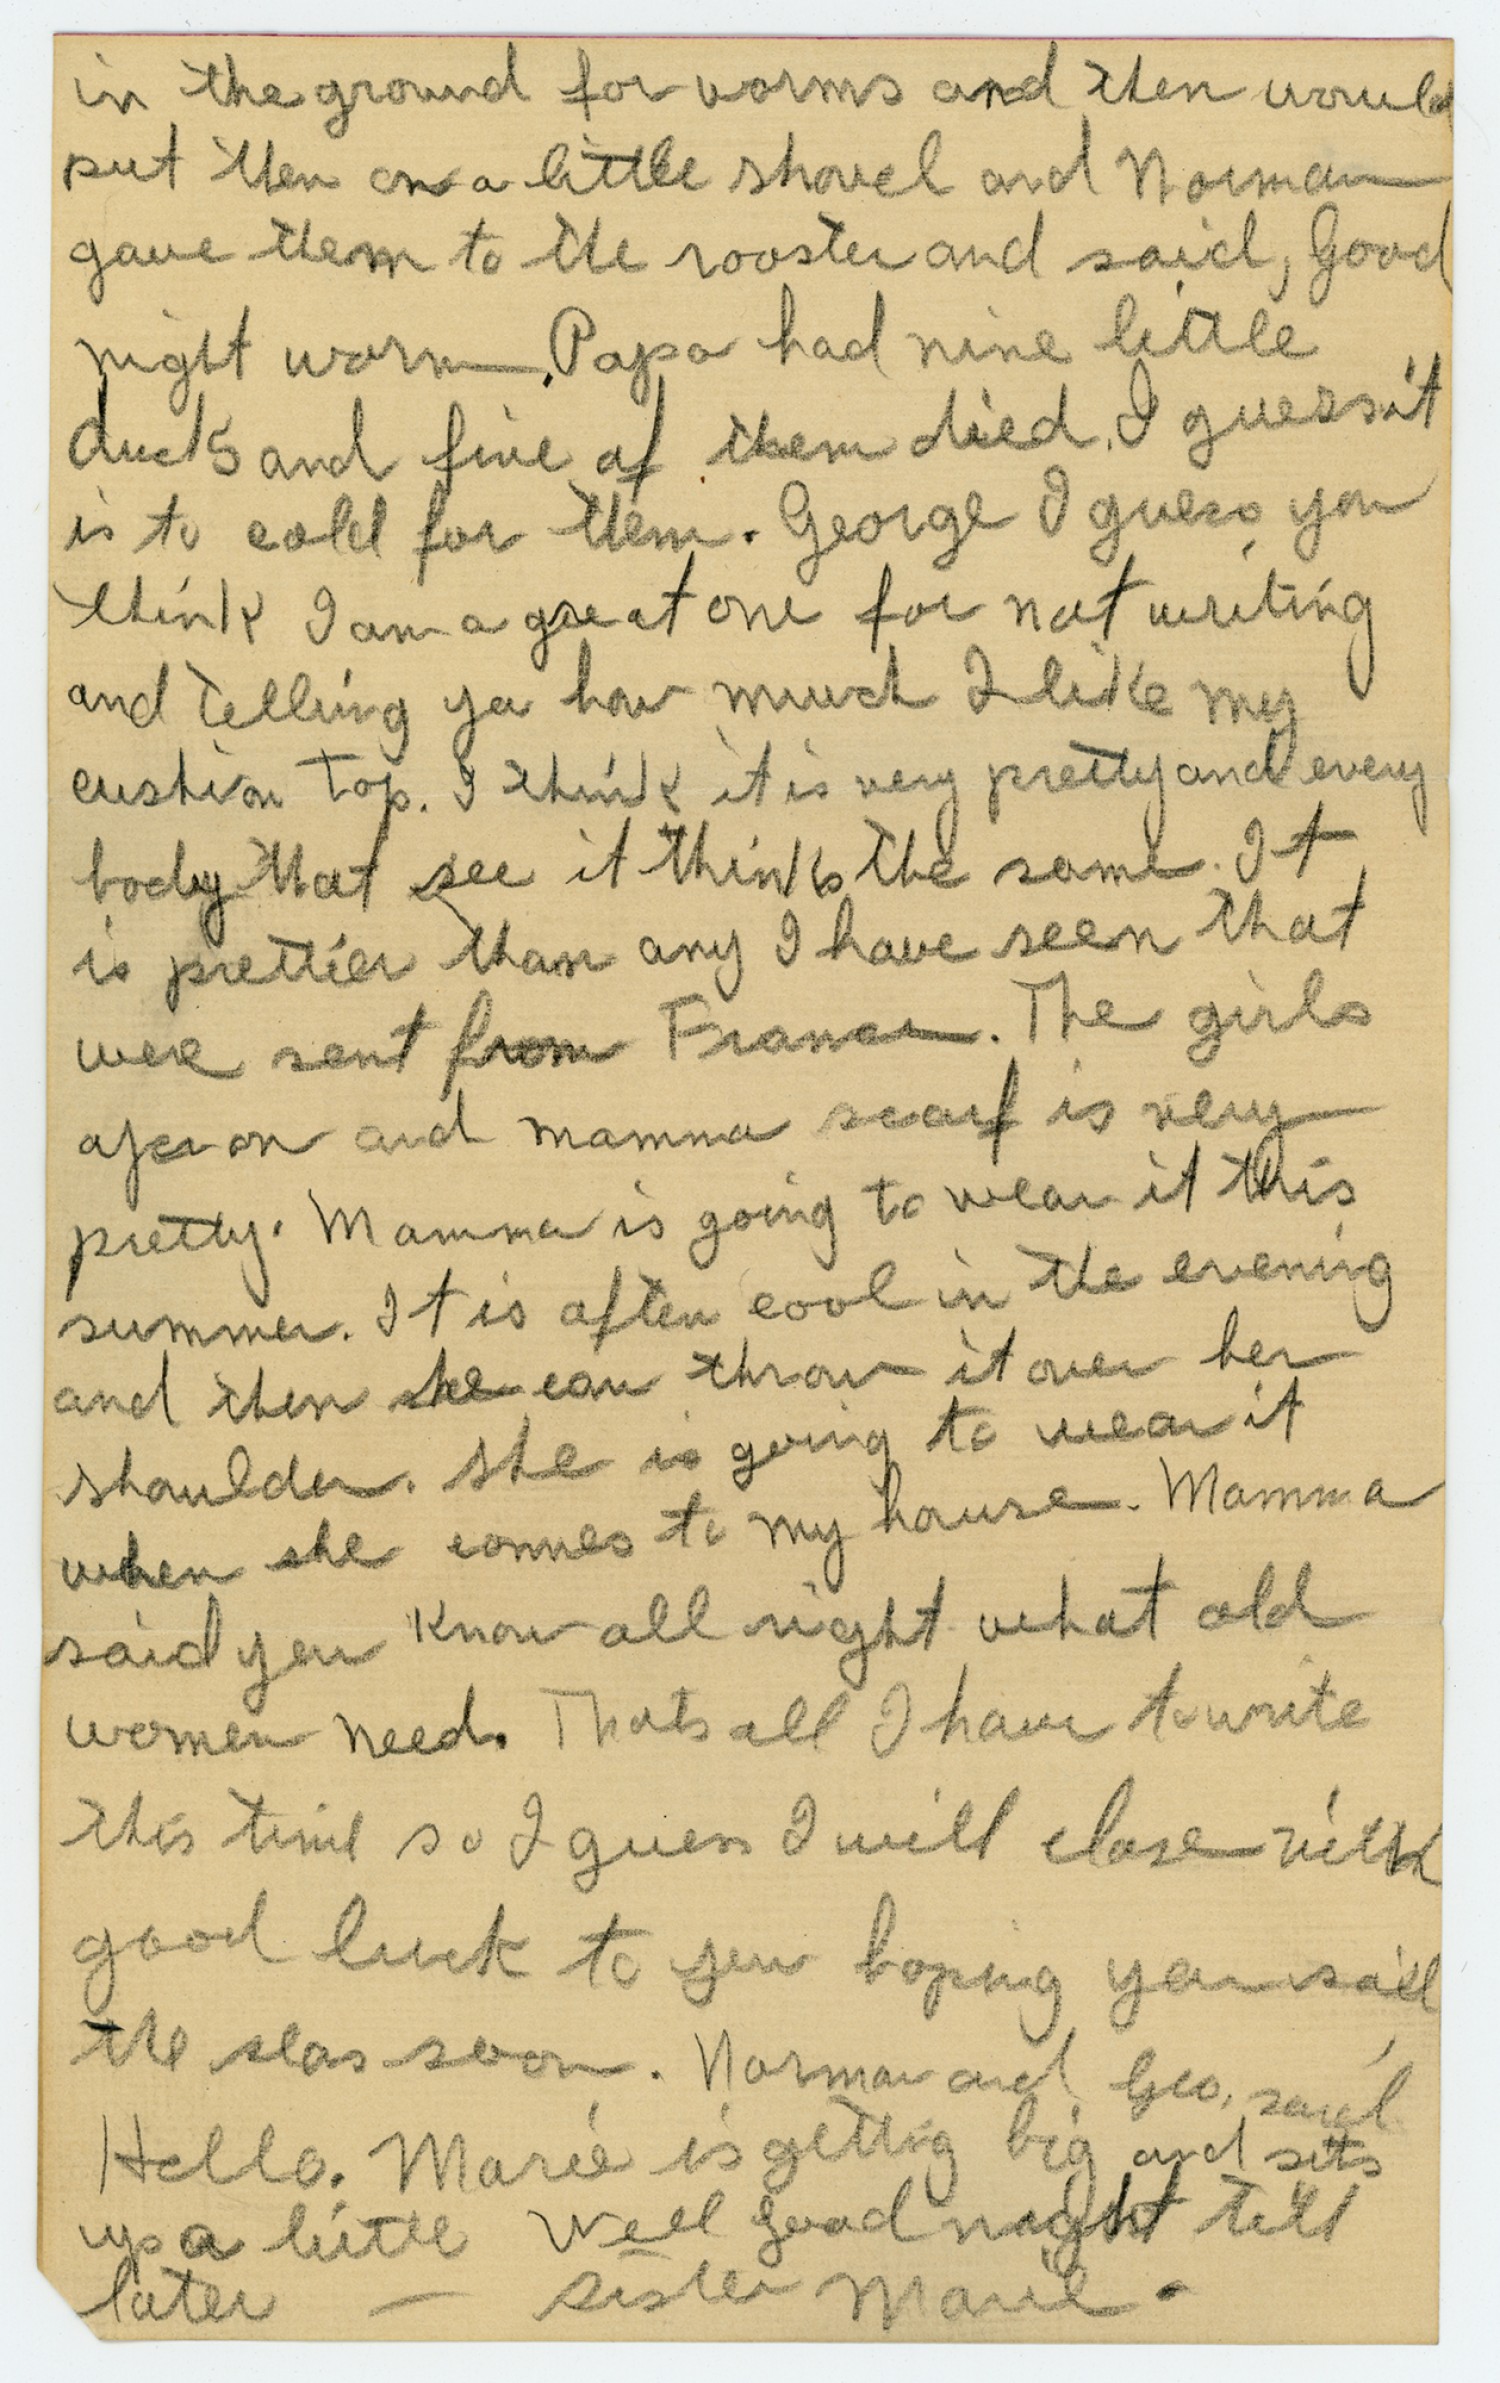 in the ground for worms and then would
put them on a little shovel and Norman
gave them to the rooster and said, Good
night worm. Papa had nine little
ducks and five of them died. I guess it
is to cold for them. George I guess you
think I am a great one for not writing
and telling you how much I like my
cushion top. I think it is very pretty and every
body that see it thinks the same. It
is prettier than any I have seen that
were sent from France. The girls
apron and mamma scarf is very
pretty. Mamma is going to wear it this
summer. It is often cool in the evening
and then she can throw it over her
shoulder. She is going to wear it
when she commes to my house. Mamma
said you know all right what old
women need. Thats all I have to write
this time so I guess I will close with
good luck to you hoping you sail
the seas soon. Norman and Geo. said
Hello. Marie is getting big and sits
up a little Well good night till
later — Sister Marie.